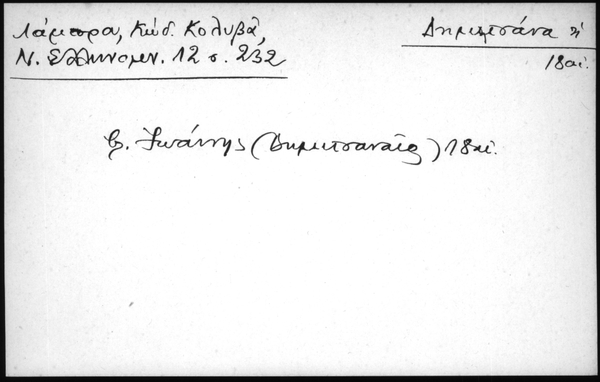 Λάμπρου, Κώδ. Κολυβᾶ,
Ν. Ἑλληνομν. 12 σ. 232
Δημητσάνα ἡ
18 αἰ.
β. Ἰωάννης (Δημητσαναῖος) 18 αἰ.